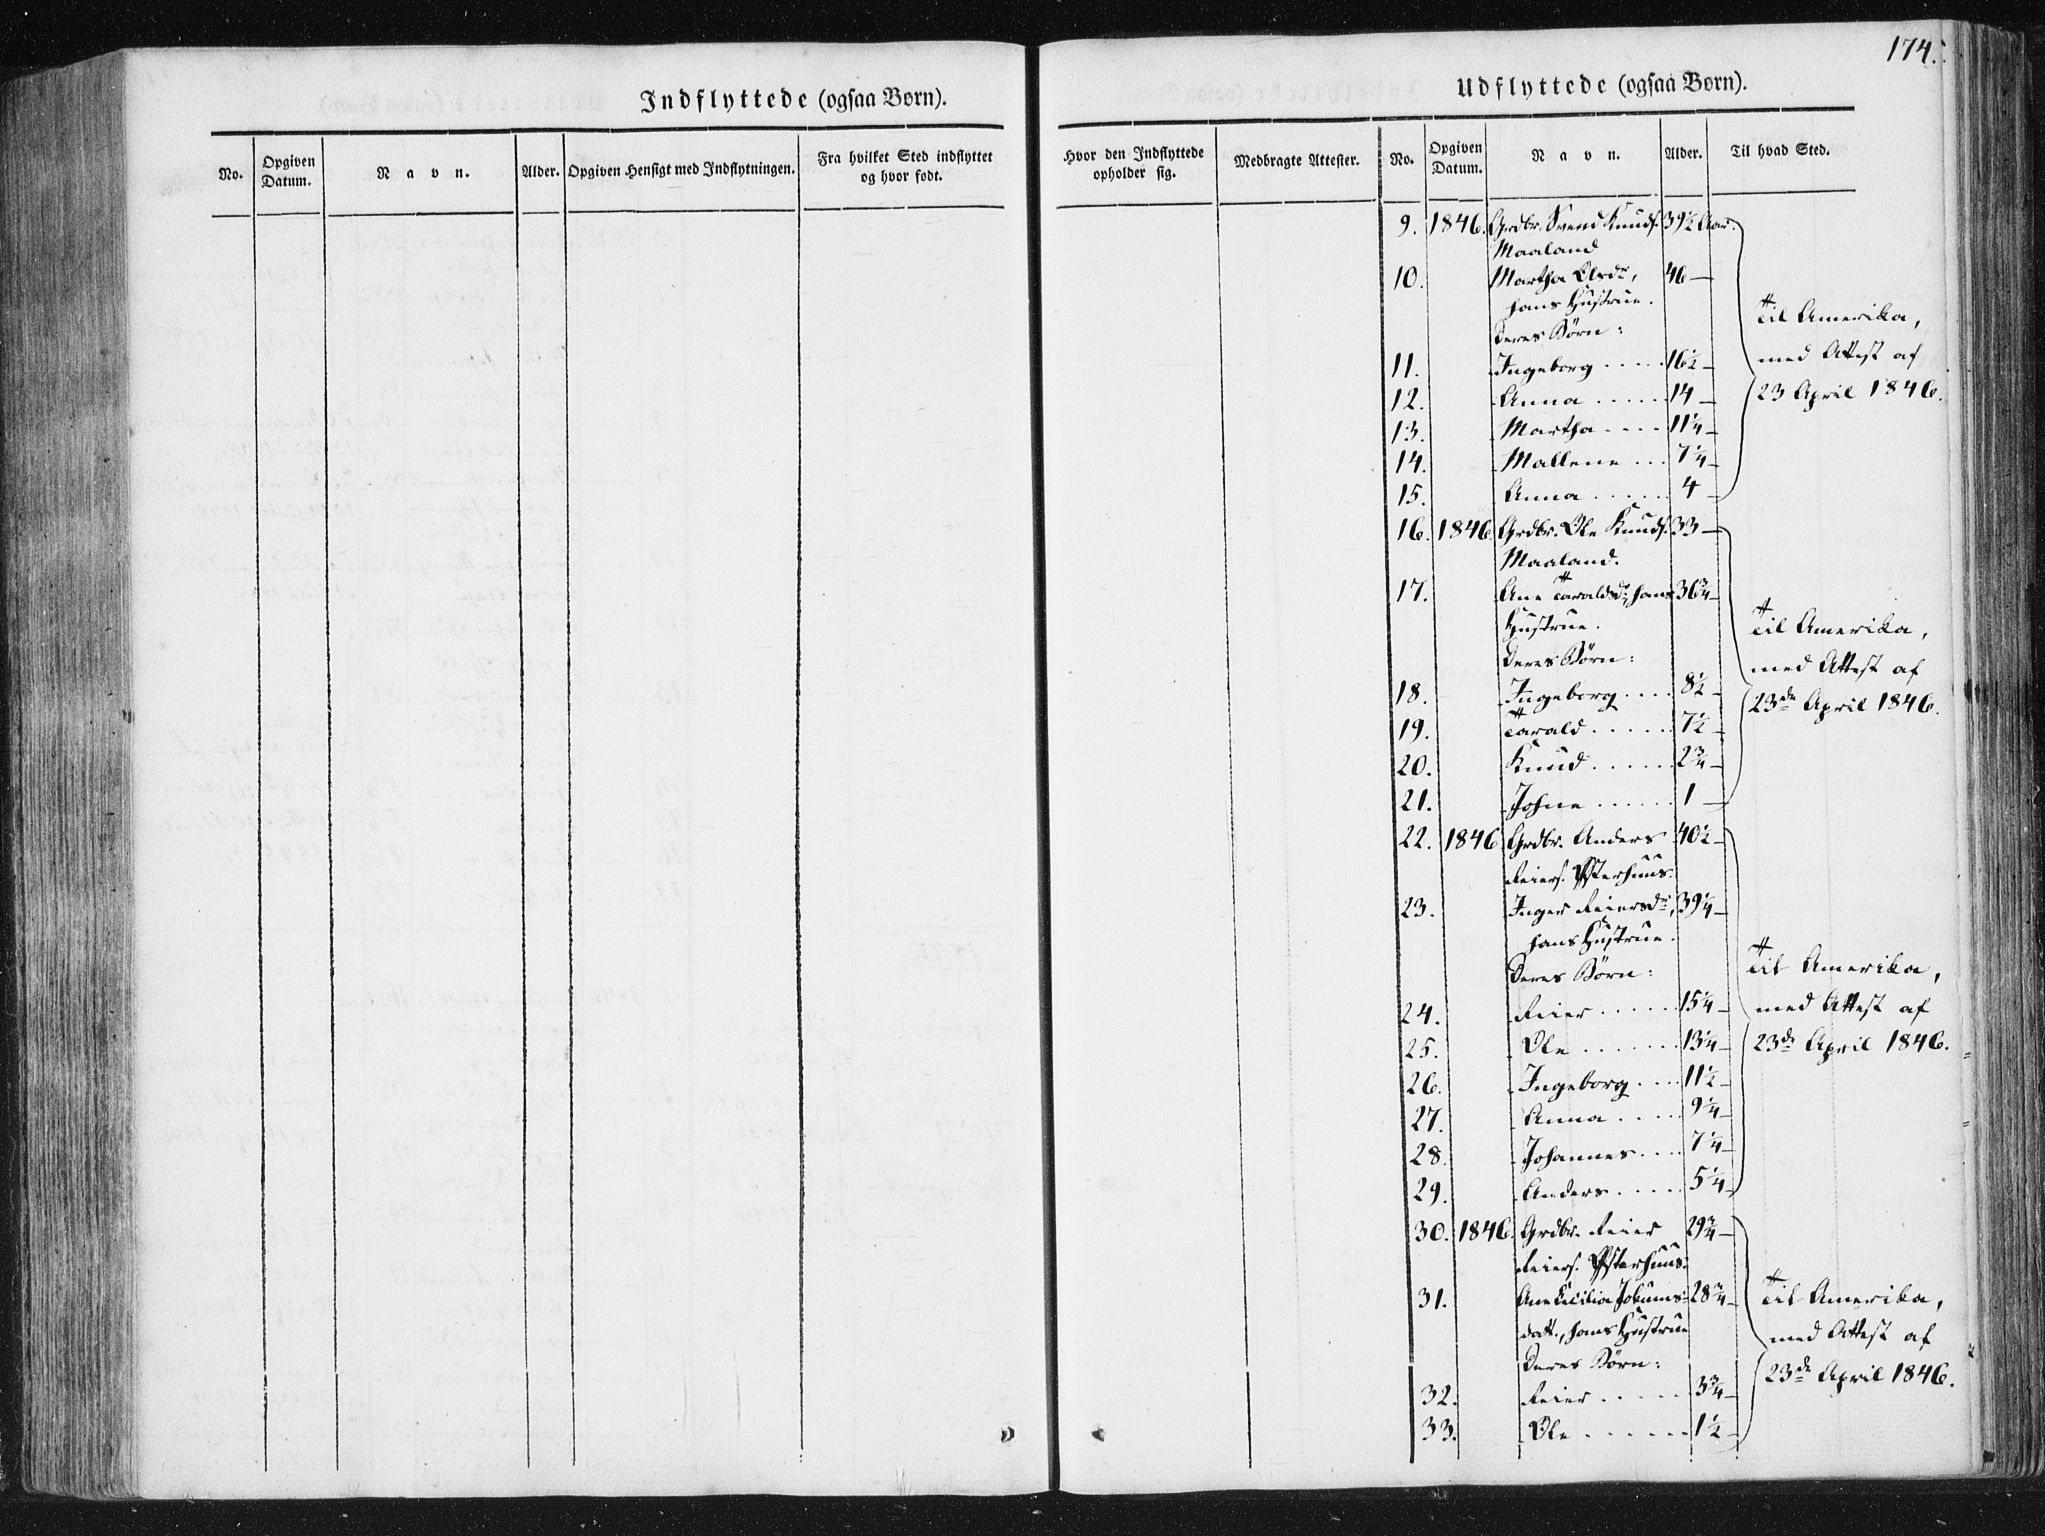 174.
Indflyttede (ogsaa Børn).
No.
Opgiven Datum.
Navn.
Alder.
Opgiven Hensigt med Indflytningen.
Fra hvilket Sted indflyttet og hvor født.
Udflyttede (ogsaa Børn).
Hvor den Indflyttede opholder sig.
Medbragte Attester.
No.
Opgiven Datum.
Navn.
Alder.
Til hvad Sted.
9. 1846. Grdbr. Svend Knuds. 39½ Aar.
Maaland
10. Martha Olsdr, 46 —
hans Hustrue.
Deres Børn:
11. Ingeborg ..... 16½ —
12. Anna ..... 14 —
13. Martha .... 11¼ —
14. Mallene ... 7¼ —
15. Anna ...... 4 —
Til Amerika,
med Attest af
23 April 1846.
16. 1846 Grdbr. Ole Knuds. 33 —
Maaland.
17. Ane Taraldsdr, hans 36¾ —
Hustrue.
Deres Børn:
18. Ingeborg .... 8½ —
19. Tarald ...... 7½ —
20. Knud ...... 2¾ —
21. Johne ...... 1 —
Til Amerika,
med Attest af
23de April 1846.
22. 1846 Grdbr. Anders 40½ —
Reiers. Ysterhuus.
23. Inger Reiersdr, 39¼ —
hans Hustrue.
Deres Børn:
24. Reier ...... 15¼ —
25. Ole ....... 13¼ —
26. Ingeborg .... 11½ —
27. Anna ..... 9¼ —
28. Johannes .... 7¼ —
29. Anders ..... 5¼ —
Til Amerika,
med Attest af
23de April 1846.
30. 1846. Grdbr. Reier 29¾ —
Reiers. Ysterhuus.
31. Ane Cecilia Jokums- 28¾ —
datt., hans Hustrue
Deres Børn:
32. Reier ..... 3¾ —
33. Ole ...... 1½ —
Til Amerika,
med Attest af
23de April 1846.